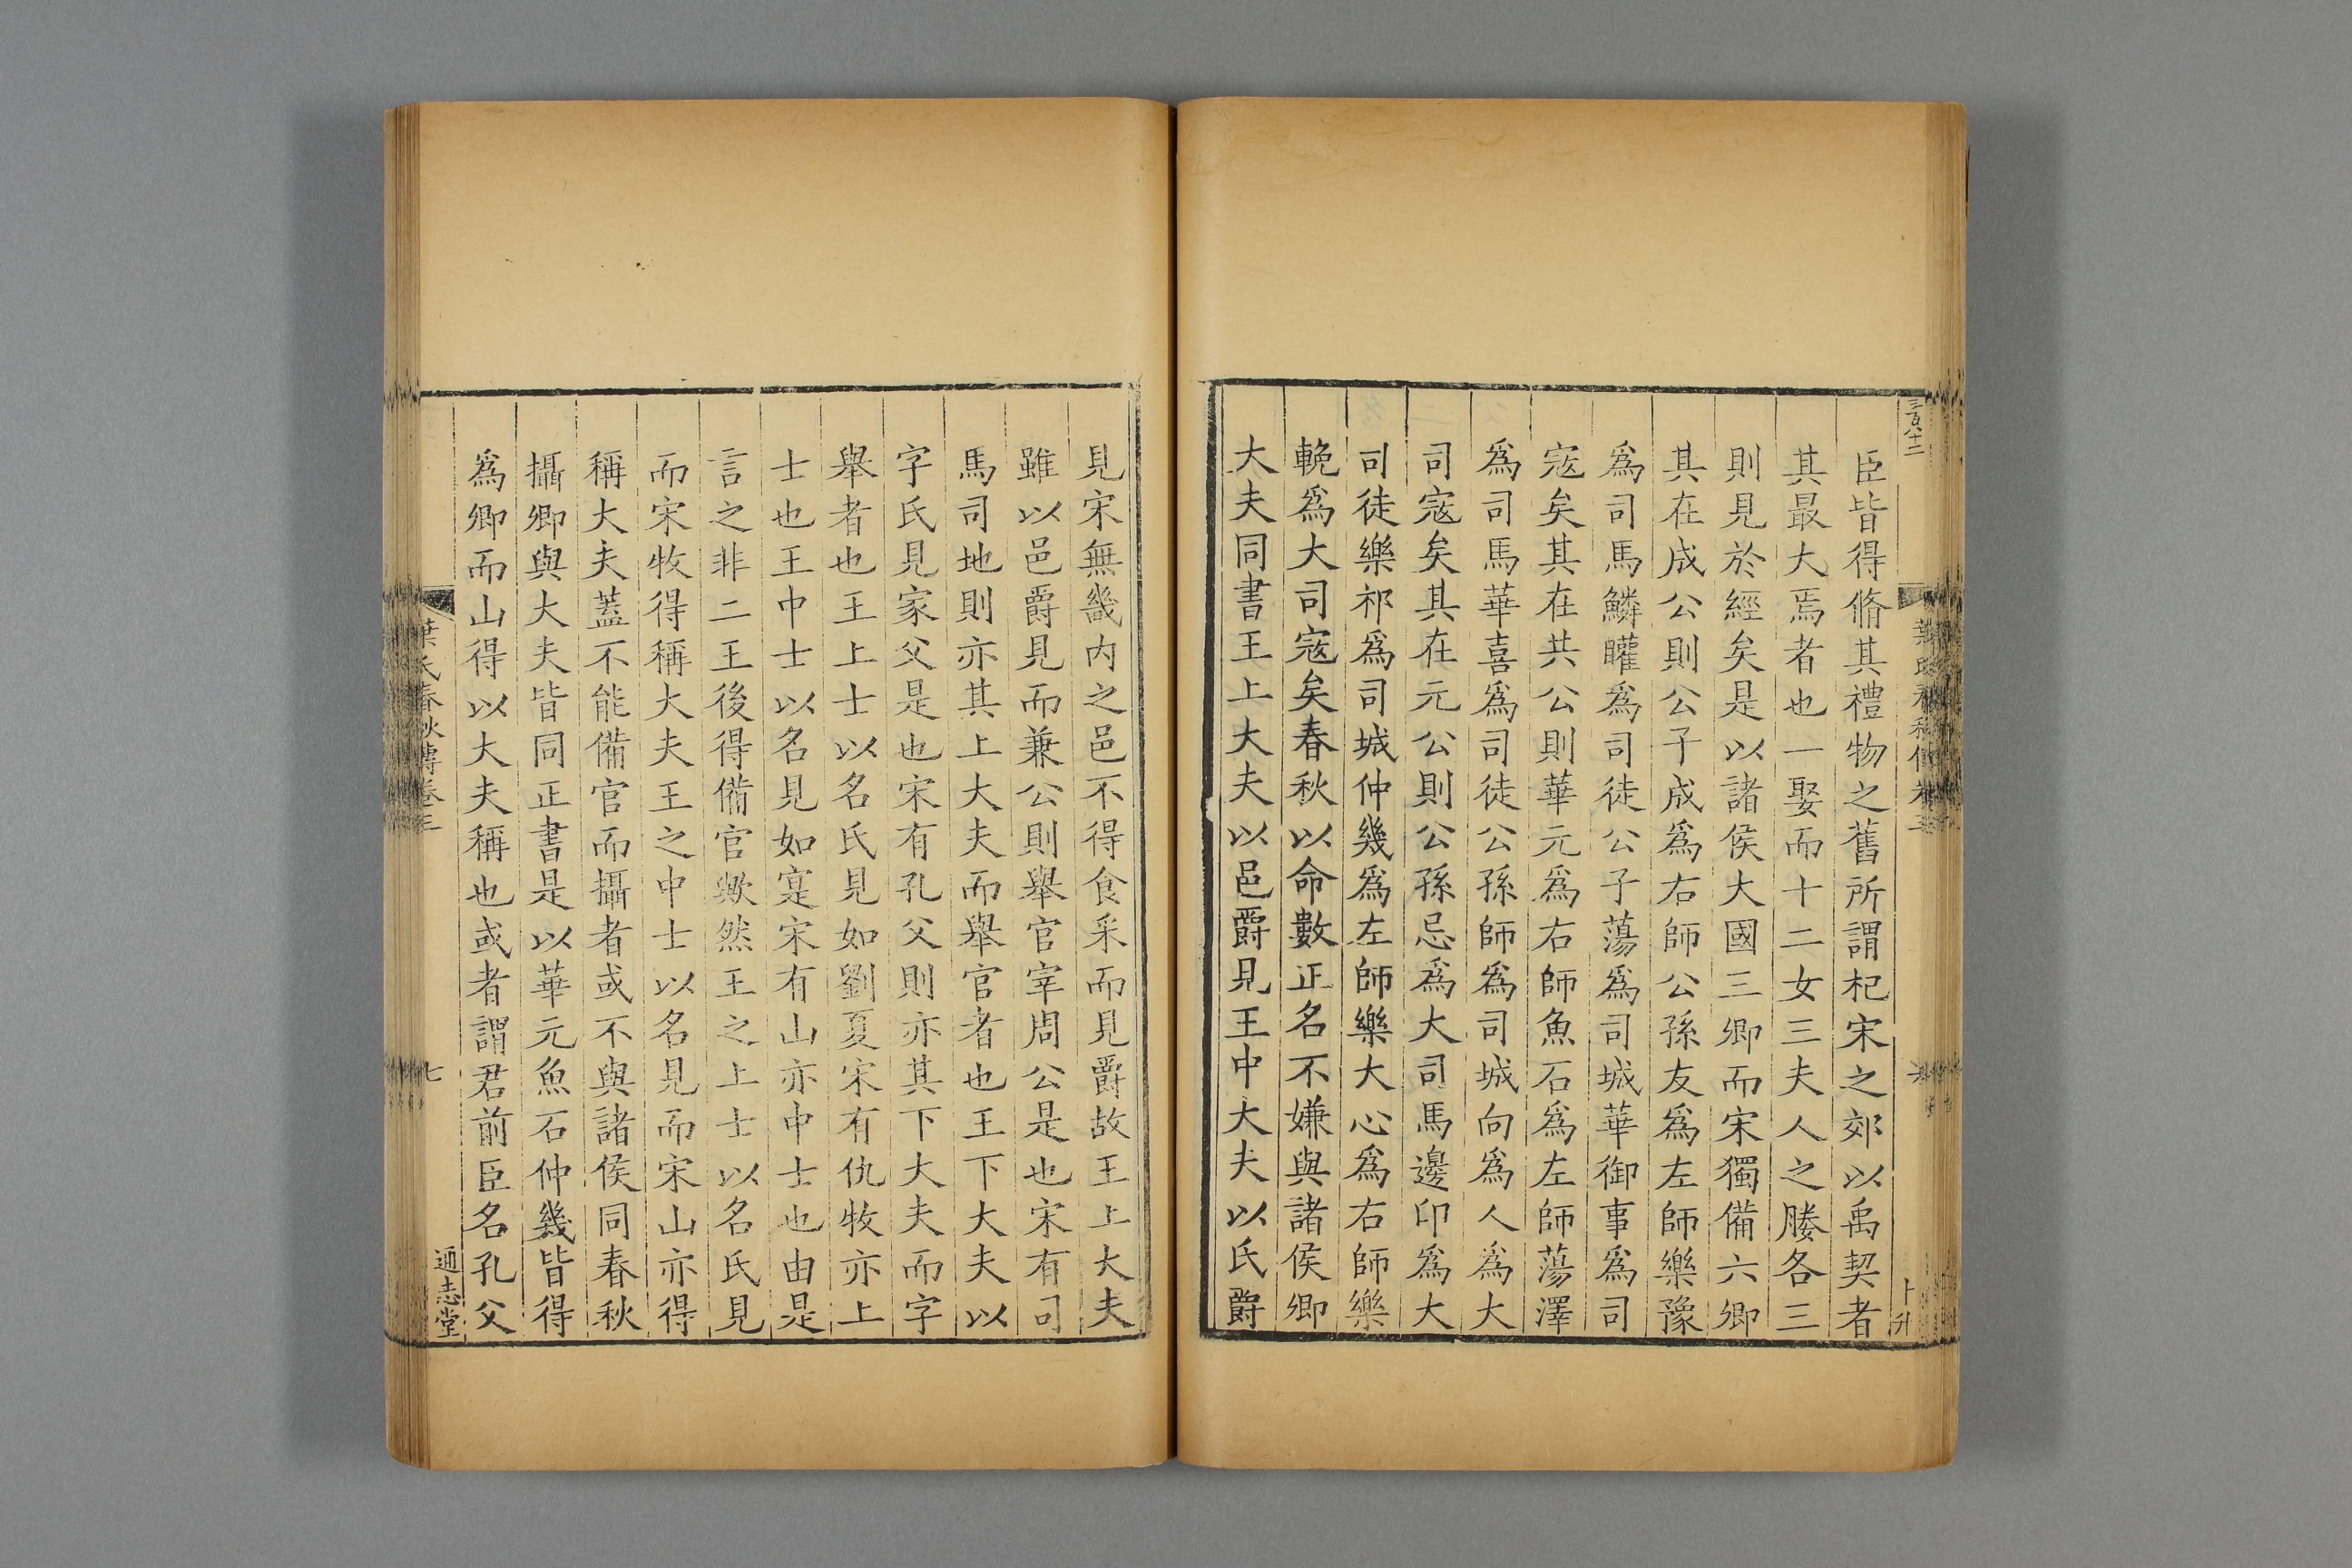 三百八十二
臣皆得脩其禮物之舊所謂杞宋之郊以禹契者
其最大焉者也一娶而十二女三夫人之媵各三
則見於經矣是以諸侯大國三卿而宋獨備六卿
其在成公則公子成爲右師公孫友爲左師樂豫
爲司馬鱗矔爲司徒公子蕩爲司城華御事爲司
寇矣其在共公則華元爲右師魚石爲左師蕩澤
爲司馬華喜爲司徒公孫師爲司城向爲人爲大
司寇矣其在元公則公孫忌爲大司馬邊卬爲大
司徒樂祁爲司城仲幾爲左師樂大心爲右師樂
輓爲大司寇矣春秋以命數正名不嫌與諸侯卿
大夫同書王上大夫以邑爵見王中大夫以氏爵
見宋無畿内之邑不得食采而見爵故王上大夫
雖以邑爵見而兼公則舉官宰周公是也宋有司
馬司地則亦其上大夫而舉官者也王下大夫以
字氏見家父是也宋有孔父則亦其下大夫而字
舉者也王上士以名氏見如劉夏宋有仇牧亦上
士也王中士以名見如寔宋有山亦中士也由是
言之非二王後得備官歟然王之上士以名氏見
而宋牧得稱大夫王之中士以名見而宋山亦得
稱大夫蓋不能備官而攝者或不與諸侯同春秋
攝卿與大夫皆同正書是以華元魚石仲幾皆得
爲卿而山得以大夫稱也或者謂君前臣名孔父
葉氏春秋傳卷三
七
通志堂